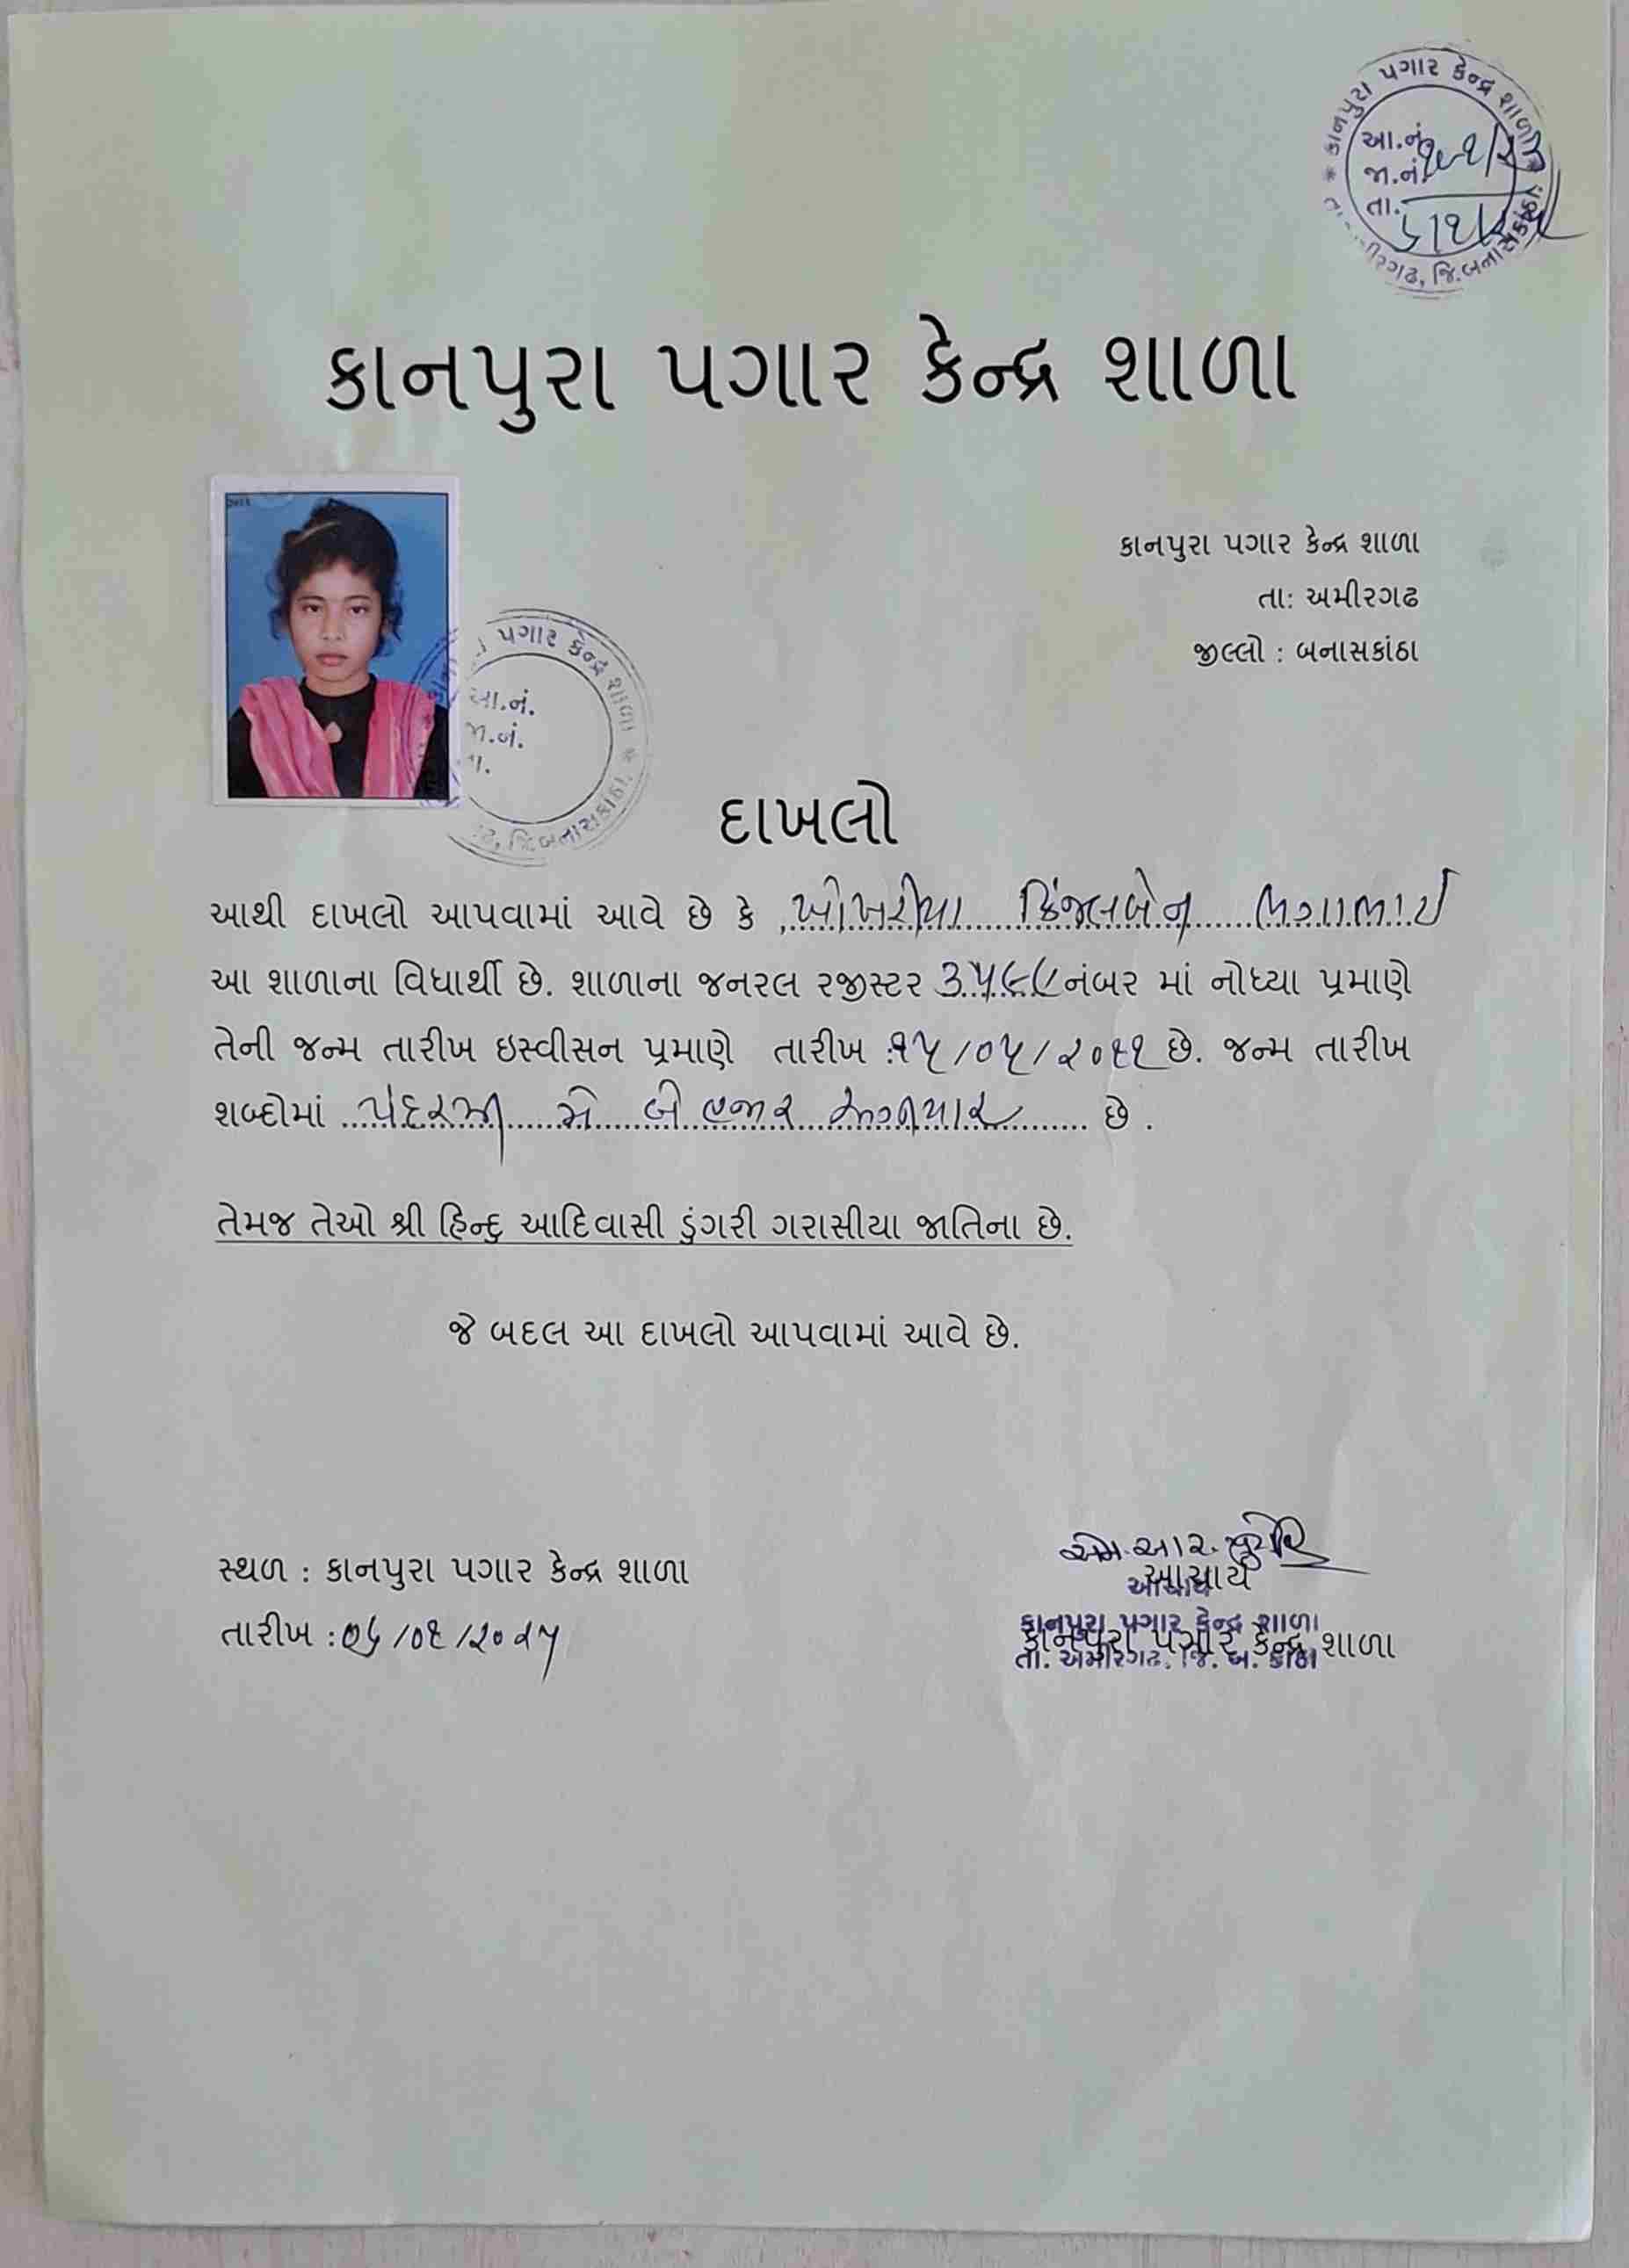 કાનપુરા પગાર કેન્દ્ર શાળા
આ.નં.
જા.નં.
તા.
જિ.બનાસકાંઠા
કાનપુરા પગાર કેન્દ્ર શાળા
કાનપુરા પગાર કેન્દ્ર શાળા
તા: અમીરગઢ
જીલ્લો : બનાસકાંઠા
પગાર કેન્દ્ર શાળા
આ.નં.
જા.નં.
તા.
જિ.બનાસકાંઠા
દાખલો
આથી દાખલો આપવામાં આવે છે કે , ખોખરીયા કિંજલબેન ભગાભાઈ
આ શાળાના વિધાર્થી છે. શાળાના જનરલ રજીસ્ટર ૩૫૯૯ નંબર માં નોધ્યા પ્રમાણે
તેની જન્મ તારીખ ઇસ્વીસન પ્રમાણે તારીખ :૧૫/૦૫/૨૦૧૧ છે. જન્મ તારીખ
શબ્દોમાં પંદરમી મે બે હજાર અગિયાર છે .
તેમજ તેઓ શ્રી હિન્દુ આદિવાસી ડુંગરી ગરાસીયા જાતિના છે.
જે બદલ આ દાખલો આપવામાં આવે છે.
એમ.આર.
આચાર્ય
આચાર્ય
કાનપુરા પગાર કેન્દ્ર શાળા
સ્થળ : કાનપુરા પગાર કેન્દ્ર શાળા
કાનપુરા પગાર કેન્દ્ર શાળા
તા. અમીરગઢ, જિ. બ. કાંઠા
તારીખ :૦૬/૦૧/૨૦૨૫